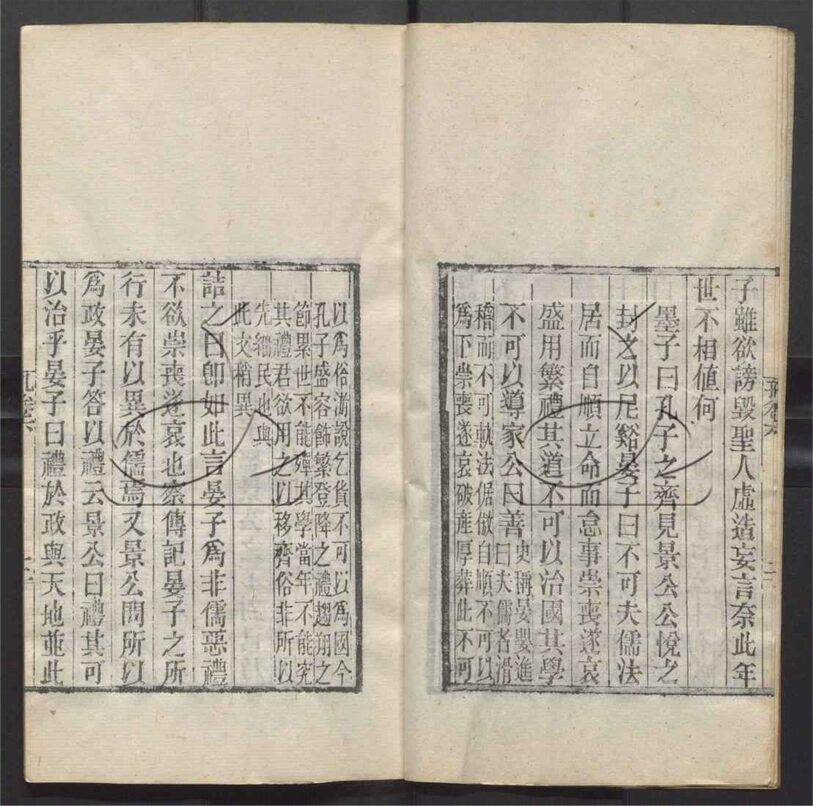 子雖欲謗毀聖人虛造妄言奈此年
世不相値何
墨子曰孔子之齊見景公公悅之
封之以尼谿晏子曰不可夫儒法
居而自順立命而怠事崇喪遂哀
盛用繁禮其道不可以治國其學
不可以導家公曰善
史稱晏嬰進
曰夫儒者滑
稽而不可軌法倨傲自順不可以
爲下崇喪遂哀破産厚葬此不可
以爲俗游說乞貨不可以爲國今
孔子盛容飾繁登降之禮趨翔之
節累世不能殫其學當年不能究
其禮君欲用之以移齊俗非所以
先細民也與
此文稍異
詰之曰卽如此言晏子爲非儒惡禮
不欲崇喪遂哀也察傳記晏子之所
行未有以異於儒焉又景公問所以
爲政晏子答以禮云景公曰禮其可
以治乎晏子曰禮於政與天地並此